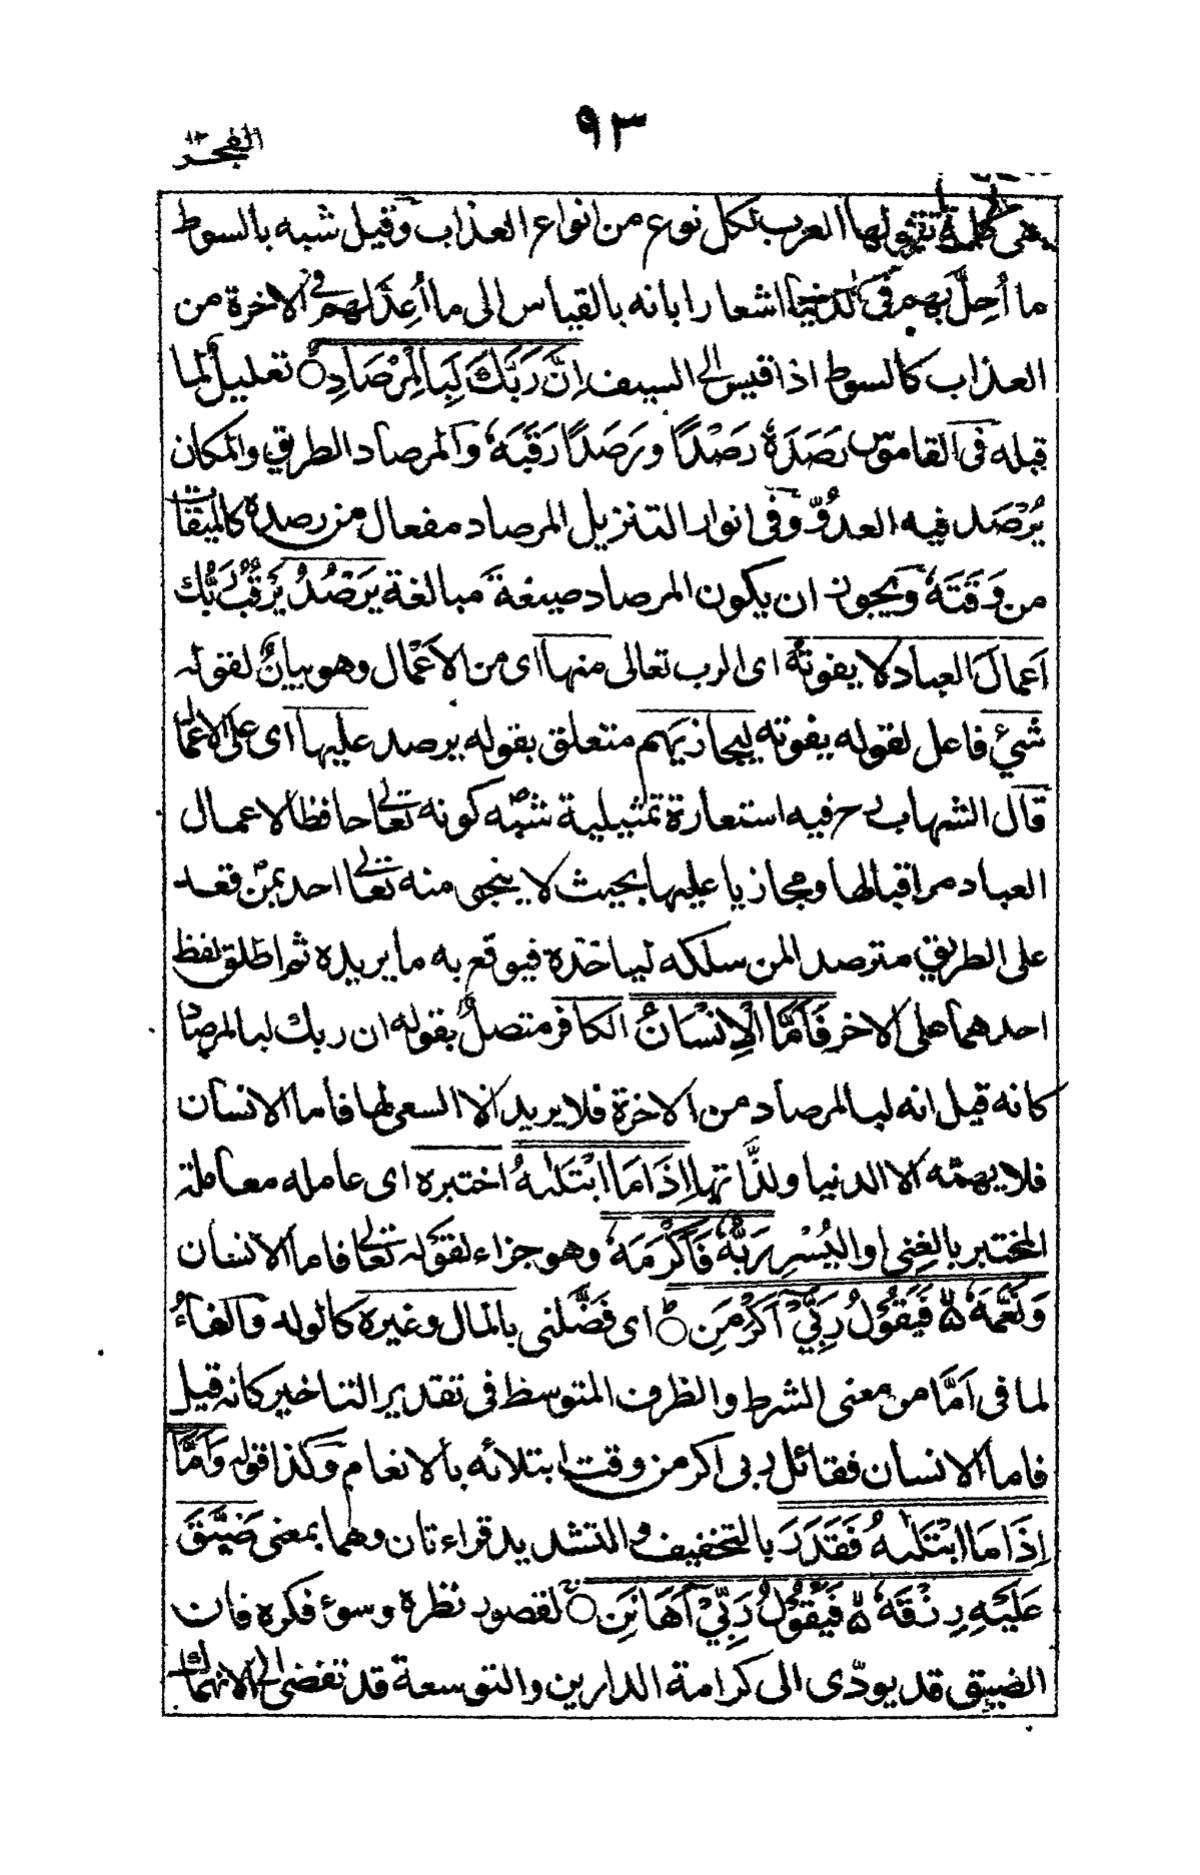 ٩٣
الفجر
هى كلمة تقولها العرب لكل نوع من انواع العذاب وقيل شبه بالسوط
ما أُحِلَّ بهم فى الدنيا اشعارا بانه بالقياس الى ما أُعِدَّ لهم فى الاخرة من
العذاب كالسوط اذا قيس الى السيف اِنَّ رَبَّكَ لَبِالْمِرْصَادِ ○ تعليل لما
قبله فى القاموس رَصَدَهٗ رَصْدًا ورَصَدًا رَقَبَهٗ والمرصاد الطريق والمكان
يُرْصَد فيه العدُوُّ وفى انوار التنزيل المرصاد مفعال من رصده كالميقات
من وَقَتَهٗ ويجوز ان يكون المرصاد صيغة مبالغة يَرْصُدُ يَرْقُبُ رَبُّك
اَعمالَ العباد لا يفوتُهٗ اى الرب تعالى منها اى من الاَعْمال وهو بيانٌ لقوله
شيءٌ فاعل لقوله يفوته ليجازيَهم متعلق بقوله يرصد عليها اى على الاعمال
قال الشهاب رح فيه استعارة تمثيلية شبّه كونه تعالى حافظا لاعمال
العباد مراقبا لها ومجازيا عليها بحيث لا ينجى منه تعالى احد بمن قعد
على الطريق مترصدا لمن سلكه لياخذه فيوقع به ما يريده ثم اطلق لفظ
احدهما على الاخر فَاَمَّا الْاِنْسَانُ الكافر متصلٌ بقوله ان ربك لبالمرصاد
كانه قيل انه لبالمرصاد من الاخرة فلا يريد الا السعى لها فاما الانسان
فلا يهمّه الا الدنيا ولذّاتها اِذَا مَا ابْتَلٰىهُ اختبره اى عامله معاملة
المختبر بالغِنٰى او اليُسْرِ رَبُّهٗ فَاَكْرَمَهٗ وهو جزاء لقوله تعالى فاما الانسان
وَنَعَّمَهٗ ۵ فَيَقُوْلُ رَبِّيْٓ اَكْرَمَنِ ○ اى فَضَّلنى بالمال وغيره كالوله والفاءُ
لما فى اَمَّا من معنى الشرط والظرف المتوسط فى تقدير التاخير كانه قيل
فاما الانسان فقائل ربى اكرمن وقت ابتلائه بالانعام وكذا قوله وَاَمَّآ
اِذَا مَا ابْتَلٰىهُ فَقَدَرَ بالتخفيف والتشديد قراءتان وهما بمعنى ضَيَّقَ
عَلَيْهِ رِزْقَهٗ ۵ فَيَقُوْلُ رَبِّيْٓ اَهَانَنِ ○ لقصور نظره وسوء فكره فان
الضيق قد يودّى الى كرامة الدارين والتوسعة قد تفضى الى الانهماك